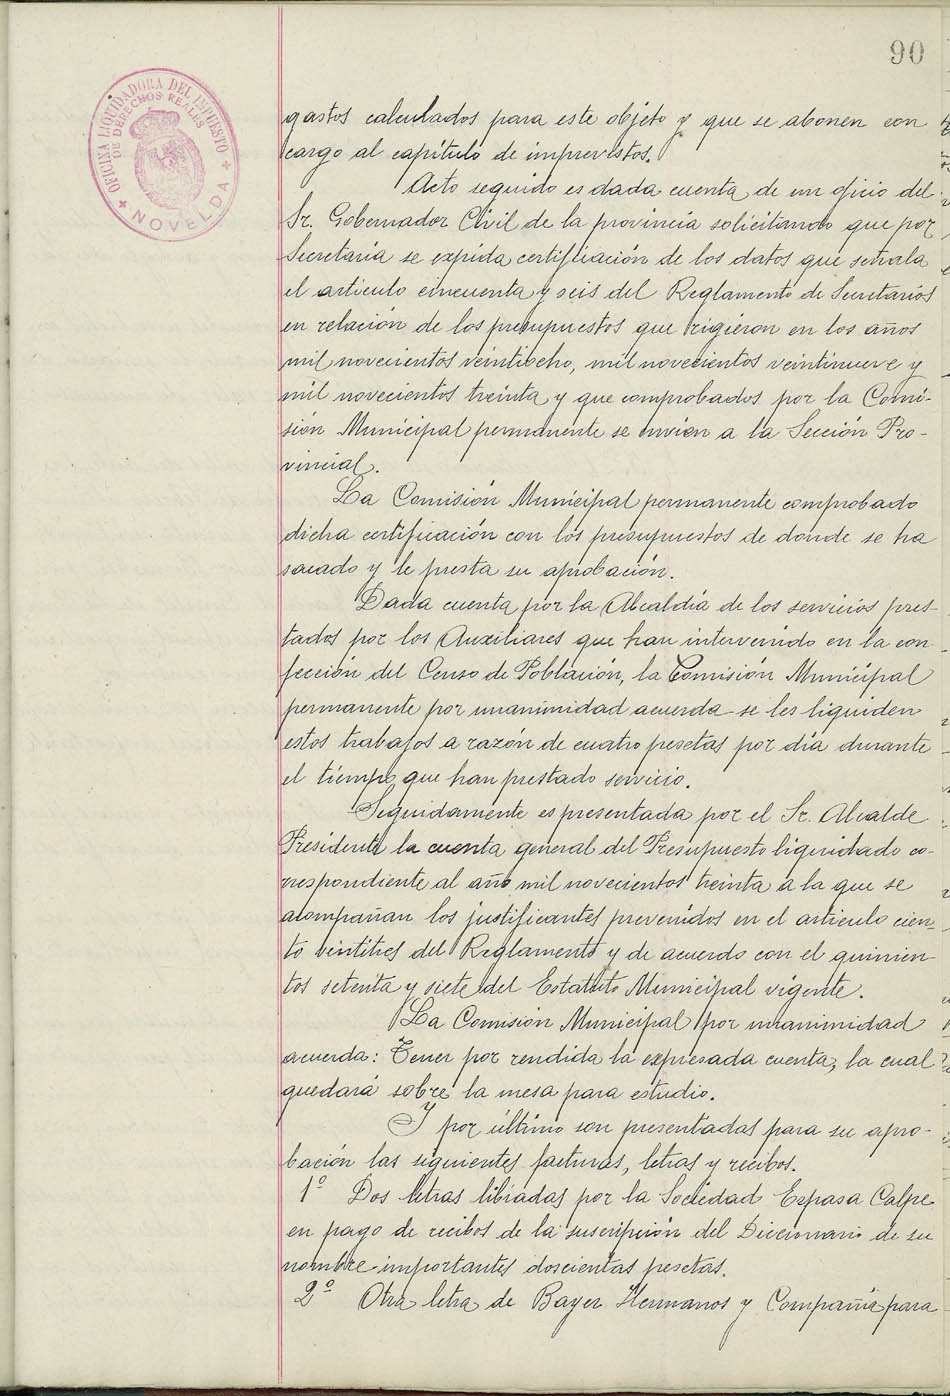 90
OFICINA LIQUIDADORA DEL IMPUESTO
DE DERECHOS REALES
NOVELDA
gastos calculados para este objeto y que se abonen con
cargo al capítulo de imprevistos.
Acto seguido es dada cuenta de un oficio del
Sr. Gobernador Civil de la provincia solicitando que por
Secretaría se expida certificación de los datos que señala
el articulo cincuenta y seis del Reglamento de Secretarios
en relación de los presupuestos que rigieron en los años
mil novecientos veintiocho, mil novecientos veintinueve y
mil novecientos treinta y que comprobados por la Comi-
sión Municipal permanente se envien a la Sección Pro-
vincial.
La Comisión Municipal permanente comprobado
dicha certificación con los presupuestos de donde se ha
sacado y le presta su aprobación.
Dada cuenta por la Alcaldía de los servicios pres-
tados por los Auxiliares que han intervenido en la con-
fección del Censo de Población, la Comisión Municipal
permanente por unanimidad acuerda se les liquiden
estos trabajos a razón de cuatro pesetas por día durante
el tiempo que han prestado servicio.
Seguidamente es presentada por el Sr. Alcalde
Presidente la cuenta general del Presupuesto liquidado co-
rrespondiente al año mil novecientos treinta a la que se
acompañan los justificantes prevenidos en el articulo cien-
to veintitres del Reglamento y de acuerdo con el quinien-
tos setenta y siete del Estatuto Municipal vigente.
La Comisión Municipal por unanimidad
acuerda: Tener por rendida la expresada cuenta, la cual
quedará sobre la mesa para estudio.
Y por último son presentadas para su apro-
bación las siguientes facturas, letras y recibos.
1º Dos letras libradas por la Sociedad Espasa Calpe
en pago de recibos de la suscripción del Diccionario de su
nombre importantes doscientas pesetas.
2º Otra letra de Bayer Hermanos y Compañía para